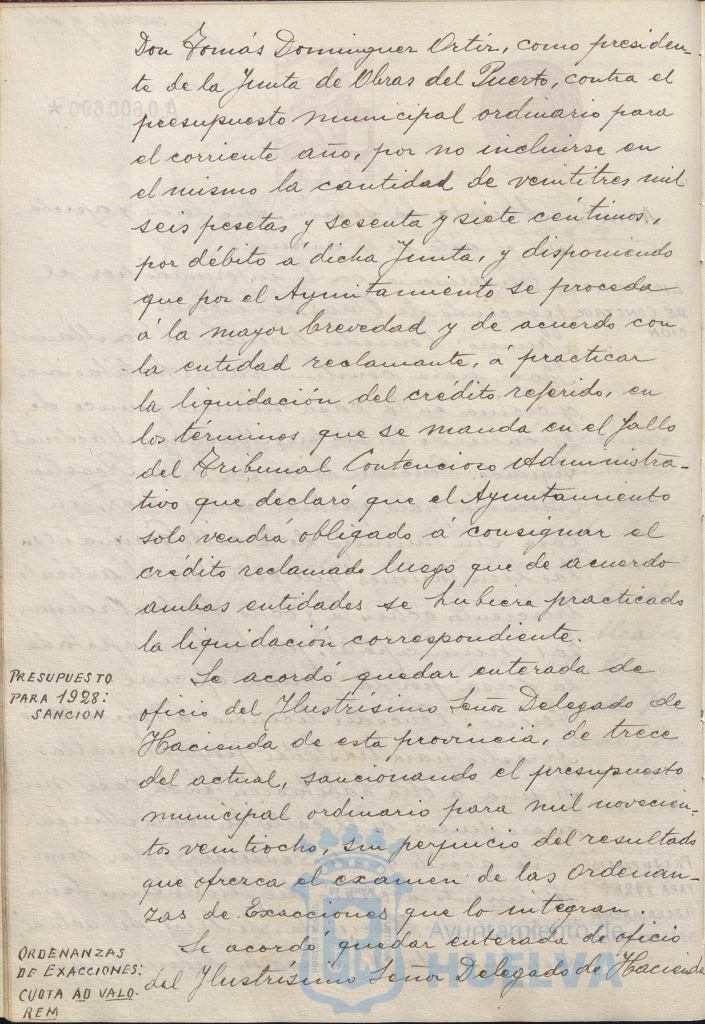 Don Tomás Dominguez Ortiz, como presiden-
te de la Junta de Obras del Puerto, contra el
presupuesto municipal ordinario para
el corriente año, por no incluirse en
el mismo la cantidad de veintitres mil
seis pesetas y sesenta y siete céntimos,
por débito á dicha Junta, y disponiendo
que por el Ayuntamiento se proceda
á la mayor brevedad y de acuerdo con
la entidad reclamante, á practicar
la liquidación del crédito referido, en
los términos que se manda en el fallo
del Tribunal Contencioso Administra-
tivo que declaró que el Ayuntamiento
solo vendrá obligado á consignar el
crédito reclamado luego que de acuerdo
ambas entidades se hubiera practicado
la liquidación correspondiente.
PRESUPUESTO
PARA 1928:
SANCION
Se acordó quedar enterada de
oficio del Ilustrísimo Señor Delegado de
Hacienda de esta provincia, de trece
del actual, sancionando el presupuesto
municipal ordinario para mil novecien-
tos veintiocho, sin perjuicio del resultado
que ofrezca el examen de las Ordenan-
zas de Exacciones que lo integran.
ORDENANZAS
DE EXACCIONES:
CUOTA AD VALO-
REM
Se acordó quedar enterada de oficio
del Ilustrísimo Señor Delegado de Hacienda
Ayuntamiento de
HUELVA